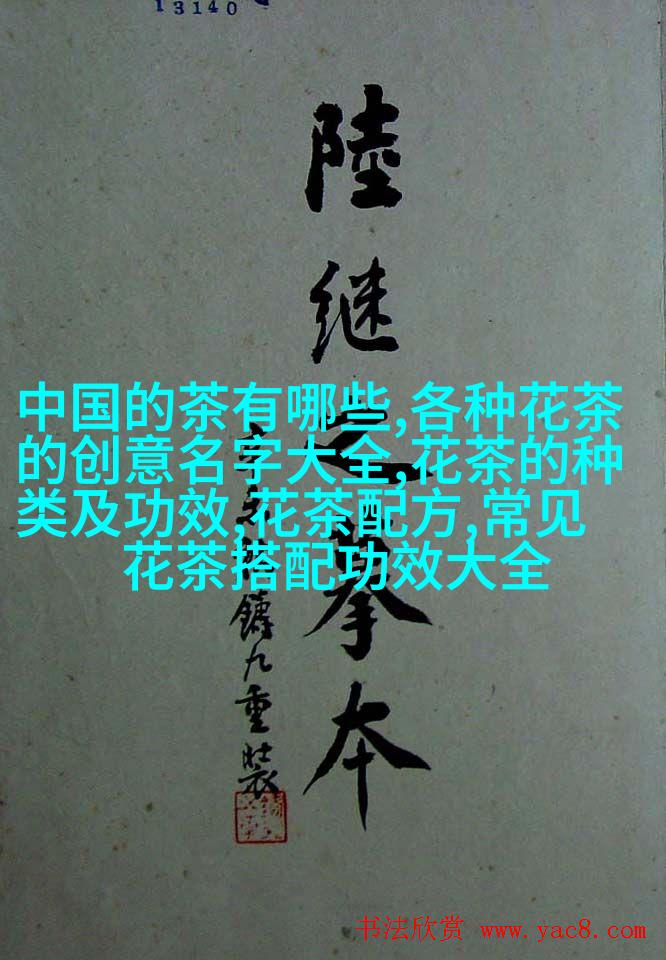 13140
陸继之摹本
鑄九重裝
中国的茶有哪些,各种花茶
的创意名字大全,花茶的种
类及功效,花茶配方,常见
花茶搭配功效大全
书法欣赏 www.yac8.com